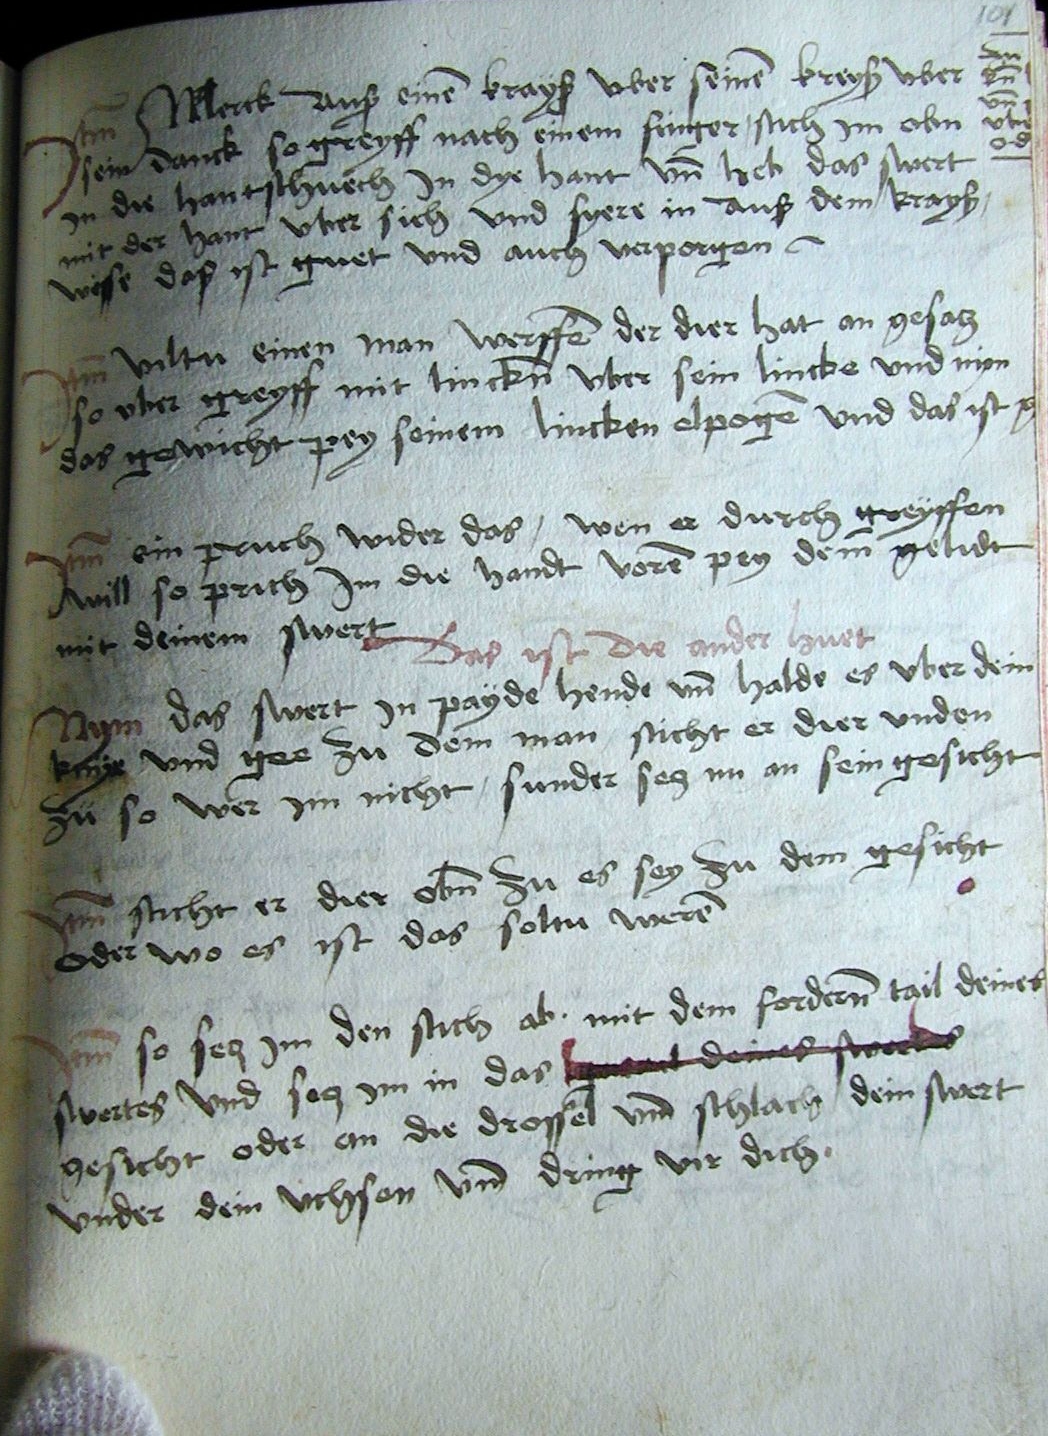 101
Itm Merck Auß einē krayß vber seinē kreyß vber
sein danck so greyff nach einem finger stich im obn
in die hantschuech In dye hant vn̄ heb das swert
mit der hant vber sich vnd fyere in Auß dem krayß,
wisse daß ist guet vnd auch verporgen
Itm viltu einen man werffē der dier hat an gesatz
so vber greyff mit linckn̄ vber sein lincke vnd nym
das gewicht pey seinem lincken elpogē vnd das ist
Itm ein pruch wider das, wen er durch greyffen
will so prich Im die handt vorē pey dem̄ gelidt
mit deinem swert
Das ist die ander huet
Nym das swert in payde hende vn̄ halde es vber dein
knye vnd gee zu dem man, sticht er dier vnden
zü so wer im nicht, sunder setz im an sein gesicht
Itm sticht er dier obn̄ zu es sey zu dem gesicht
oder wo es ist das soltu werē
Itm so setz im den stich ab. mit dem fordern̄ tail deines
swertes vnd setz im in das deines swertes
gesicht oder an die drossel vnn̄ schlach dein swert
vnder dein vchsen vnn̄ dring vir dich.